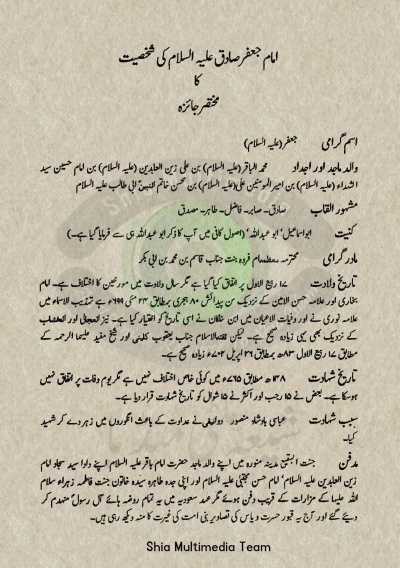 امام جعفر صادق علیہ السلام کی شخصیت
کا
مختصر جائزہ
اسم گرامی جعفر (علیہ السلام)
والد ماجد اور اجداد محمد الباقر (علیہ السلام) بن علی زین العابدین (علیہ السلام) بن امام حسین سید
الشہداء (علیہ السلام) بن امیر المومنین علی (علیہ السلام) بن محسن خاتم النبین ابی طالب علیہ السلام
مشہور القاب صادق۔ صابر۔ فاضل۔ طاہر۔ مصدق
کنیت ابو اسماعیل، ابو عبداللہ، (اصول کافی میں آپ کا ذکر ابو عبداللہ ہی سے فرمایا گیا ہے۔)
مادر گرامی محترمہ معظمہ ام فروہ بنت جناب قاسم بن محمد بن ابی بکر
تاریخ ولادت ۱۷ ربیع الاول پر اتفاق کیا گیا ہے مگر سال ولادت میں مورخین کا اختلاف ہے۔ امام
بخاری اور علامہ حسن الامین کے نزدیک سن پیدائش ۸۰ ہجری بمطابق ۲۳ مئی ۶۹۹ء ہے تہذیب الاسماء میں
علامہ نوری نے اور وفیات الاعیان میں ابن خلکان نے اسی تاریخ کو اختیار کیا ہے۔ نیز
کے نزدیک بھی یہی زیادہ صحیح ہے۔ لیکن ثقۃ الاسلام جناب یعقوب کلینی اور شیخ مفید علیہما الرحمہ کے
مطابق ۱۷ ربیع الاول ۸۳ھ بمطابق ۲۶ اپریل ۷۰۲ء زیادہ صحیح ہے۔
تاریخ شہادت ۱۴۸ھ مطابق ۷۶۵ء میں کوئی خاص اختلاف نہیں ہے مگر یوم وفات پر اتفاق نہیں
ہو سکا ہے۔ بعض نے ۱۵ رجب اور اکثر نے ۱۵ شوال کو تاریخ شہادت قرار دیا ہے۔
سبب شہادت عباسی بادشاہ منصور دوانیقی نے عداوت کے باعث انگوروں میں زہر دے کر شہید
کیا۔
مدفن جنت البقیع مدینہ منورہ میں اپنے والد ماجد حضرت امام باقر علیہ السلام اپنے دادا سید سجاد امام
زین العابدین علیہ السلام، امام حسن مجتبیٰ علیہ السلام اور اپنی جدہ طاہرہ سیدہ خاتون جنت فاطمہ زہراء سلام
اللہ علیہا کے مزارات کے قریب دفن ہوئے مگر عہد سعودیہ میں یہ تمام روضہ ہائے آل رسول منہدم کر
دیئے گئے اور آج یہ قبور حسرت و یاس کی تصاویر بنی امت کی غیرت کا منہ دیکھ رہی ہیں۔
Shia Multimedia Team